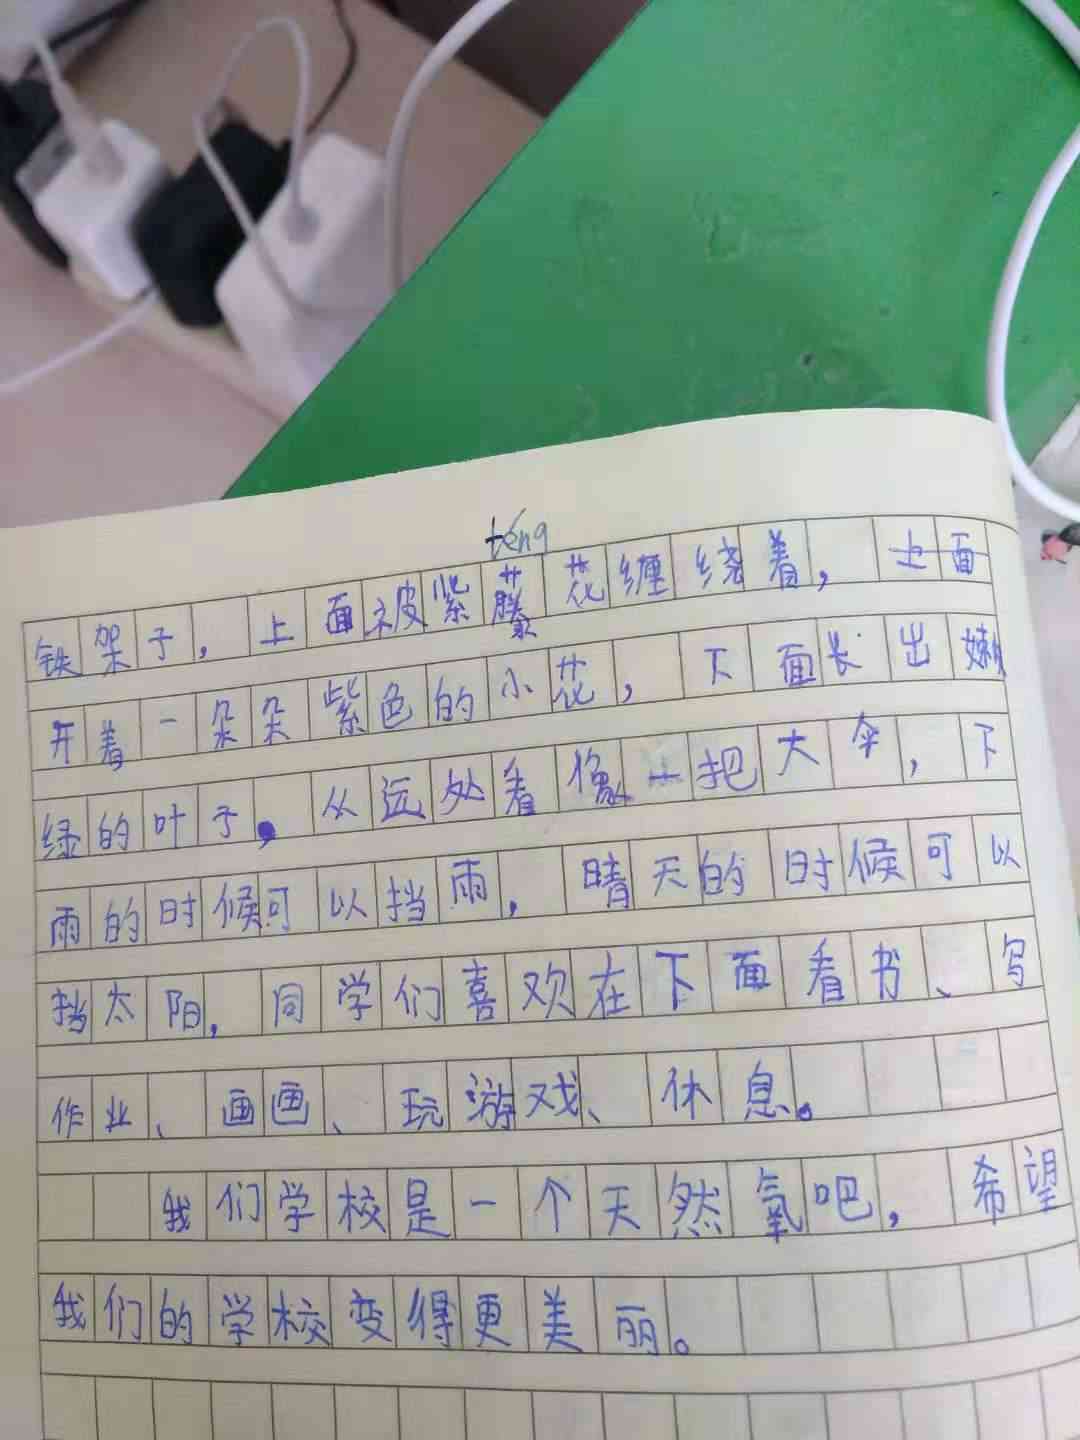 téng
铁架子，上面被紫藤花缠绕着，上面
开着一朵朵紫色的小花，下面长出嫩
绿的叶子。从远处看像一把大伞，下
雨的时候可以挡雨，晴天的时候可以
挡太阳，同学们喜欢在下面看书、写
作业、画画、玩游戏、休息。
我们学校是一个天然氧吧，希望
我们的学校变得更美丽。